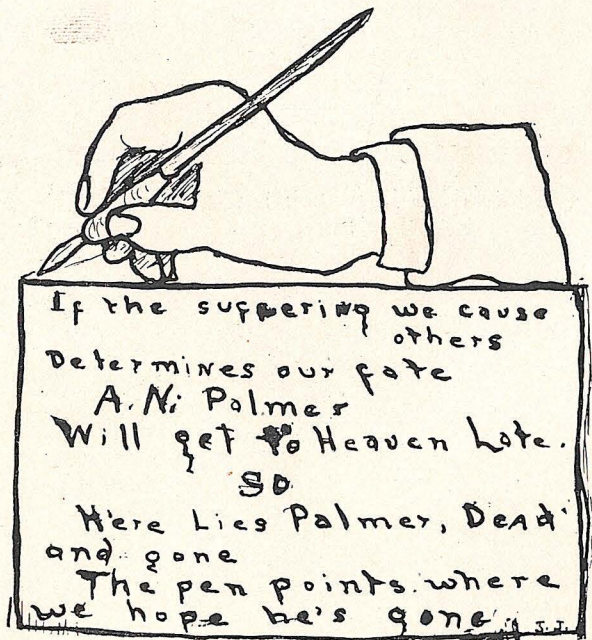 If the suffering we cause
others
Determines our fate
A. N. Palmer
Will get to Heaven Late.
SO
Here Lies Palmer, Dead
and gone
The pen points where
we hope he's gone
J.J.